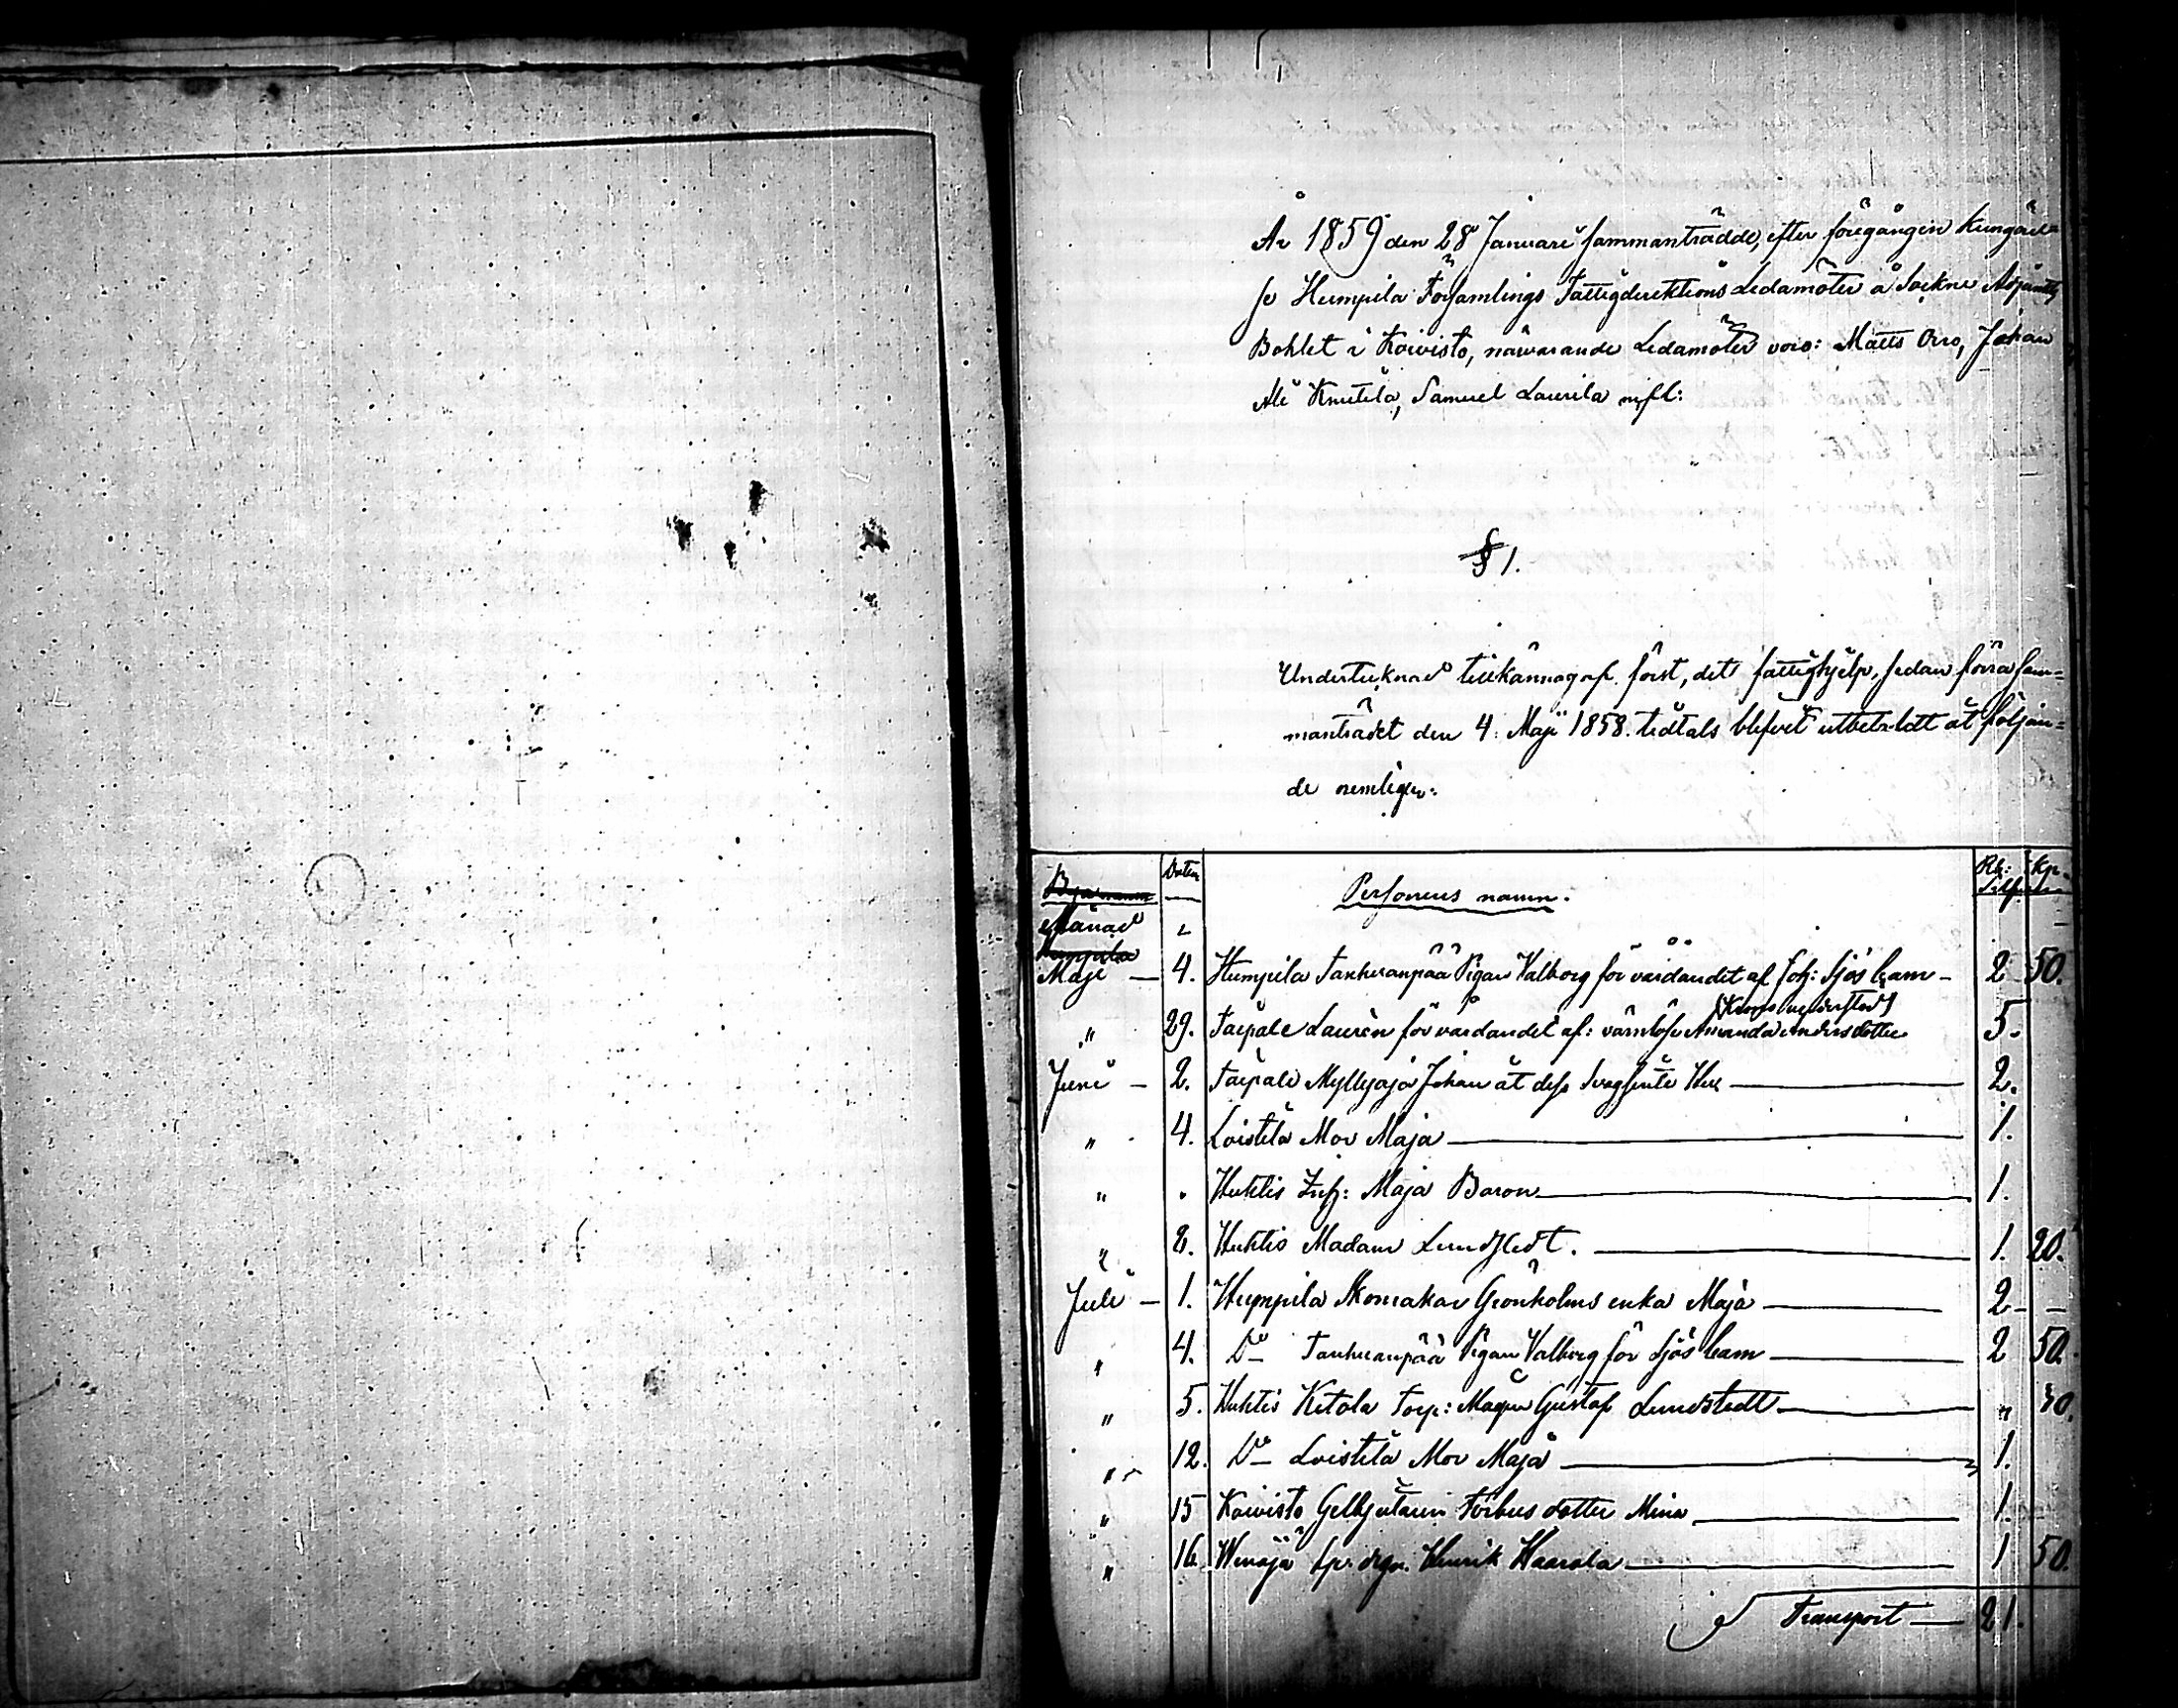 År 1859 den 28 Januari sammanträdde, efter föregången kungörel=
se Humpila Församlings Fattigdirektions Ledamöter å Sockne Adjunkts
Bohlet i Koivisto, närvarande Ledamöter voro: Matts Orro, Johan
Ali Knutila, Samuel Laurila m,fl:
§ 1.
Undertecknad tillkännagaf först, det fattighjelp, sedan förra sam=
manträdet den 4. Maji 1858. tidtals blifvit utbetaldt åt följan=
de nemligen:
Byanamn Datum Personens namn. Rb: Silf. Kp.
Månad
Humpila
Maji — 4. Humpila Tanhuanpää Pigan Valborg för vårdandet af Joh: Sjös barn — 2 50.
" 29. Taipale Lauren för vårdandet af: värnlösa Amanda Andersdotter 5.
Juni — 2. Taipale Myllyoja Johan åt dess Svagsinte — 2.
" 4. Loistila Mor Maja — 1.
" " Huhtis Inh: Maja Baron — 1.
" 8. Huhtis Madam Lundstedt. — 1. 20.
Juli — 1. Humpila Skomakar Grönholms enka Maja — 2 —
" 4. Do Tanhuanpää Pigan Valborg för Sjös barn — 2 50.
" 5. Huhtis Ketola Torp: Mågen Gustaf Lundstedt — " 30.
" 12. Do Loistila Mor Maja — 1.
" 15 Koivisto Gelbgjutaren Forbus dotter Mina — 1.
" 16. Wenäjä Henrik Haarala — 1 50.
Transport — 21.